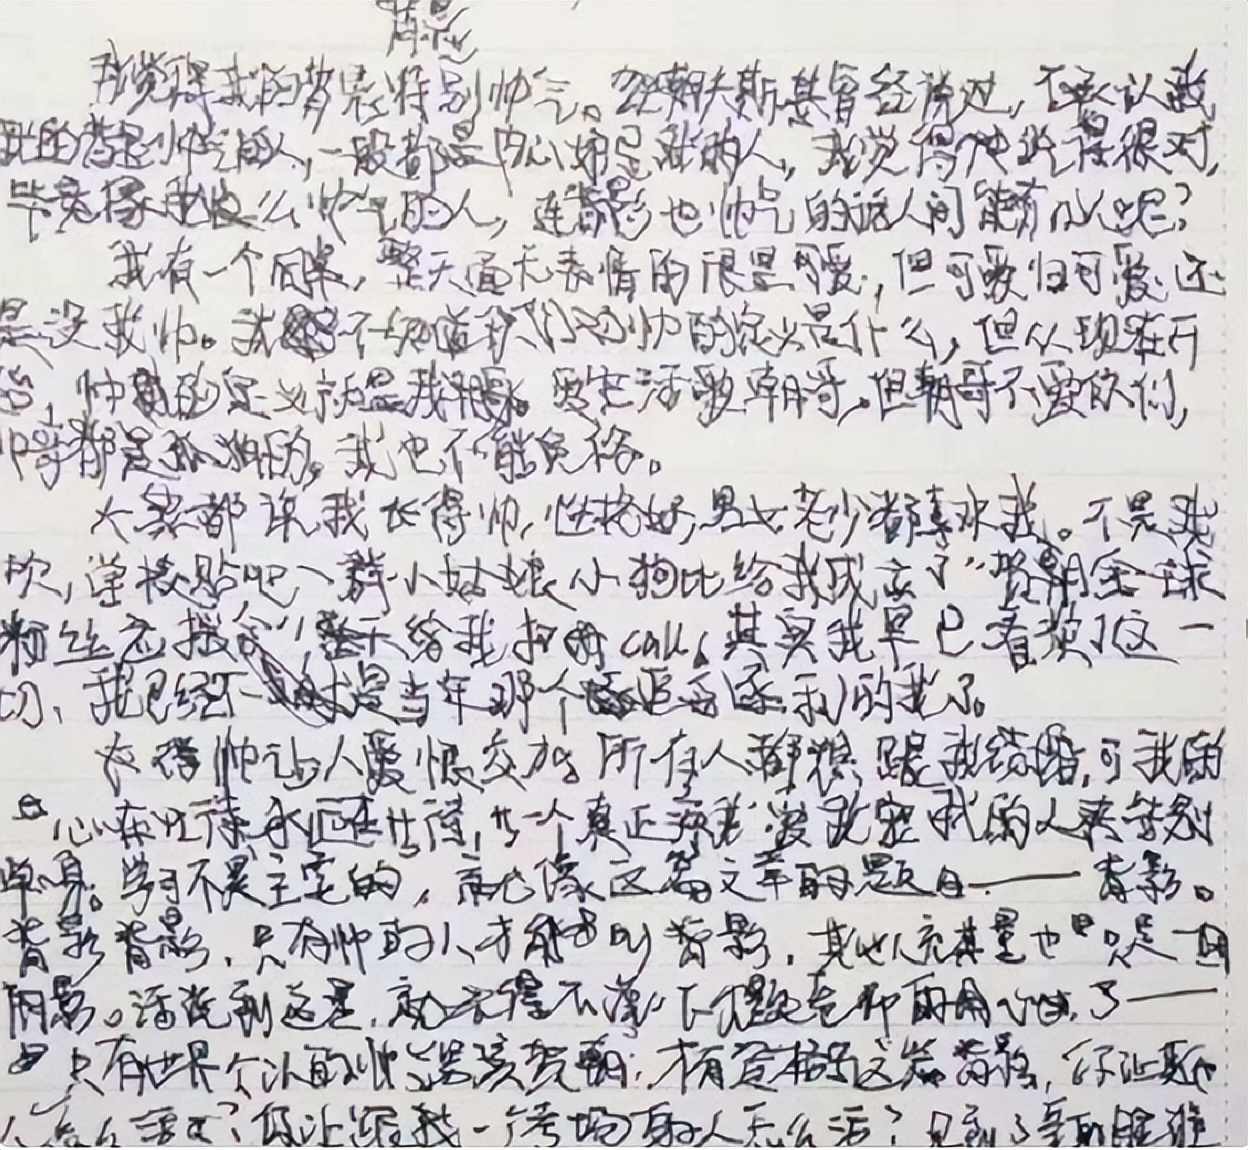 背影
我觉得我的背影特别帅气。贺朝夫斯基曾经说过，不承认我
的背影帅气的人，一般都是内心妒忌我的人，我觉得他说得很对，
毕竟像我这么帅气的人，连背影也帅气的话人间能有几人呢？
我有一个同桌，整天面无表情的很是可爱，但可爱归可爱，还
是没我帅。我不知道你们对帅的定义是什么，但从现在开
始，帅的定义就是我贺朝。爱生活爱朝哥，但朝哥不爱你们，
帅哥都是孤独的，我也不能免俗。
大家都说我长得帅，性格好，男女老少都喜欢我。不是我
吹，学校贴吧一群小姑娘小狗比给我成立了“贺朝全球
粉丝应援会”，整天给我打call，其实我早已看淡了这一
切，我已经不是当年那个的我了。
长得帅让人爱恨交加，所有人都想跟我结婚，可我的
心，一个真正爱我的人来告别
单身。学习不是主宰的，就像这篇文章的题目——背影。
背影背影，只有帅的人才能叫背影，其他人充其量也只是一团
阴影。话说到这里，就不得不了——
只有世界公认的帅男孩贺朝，才有资格写这篇背影，你让
怎么活？你让跟我一个考场的人怎么活？